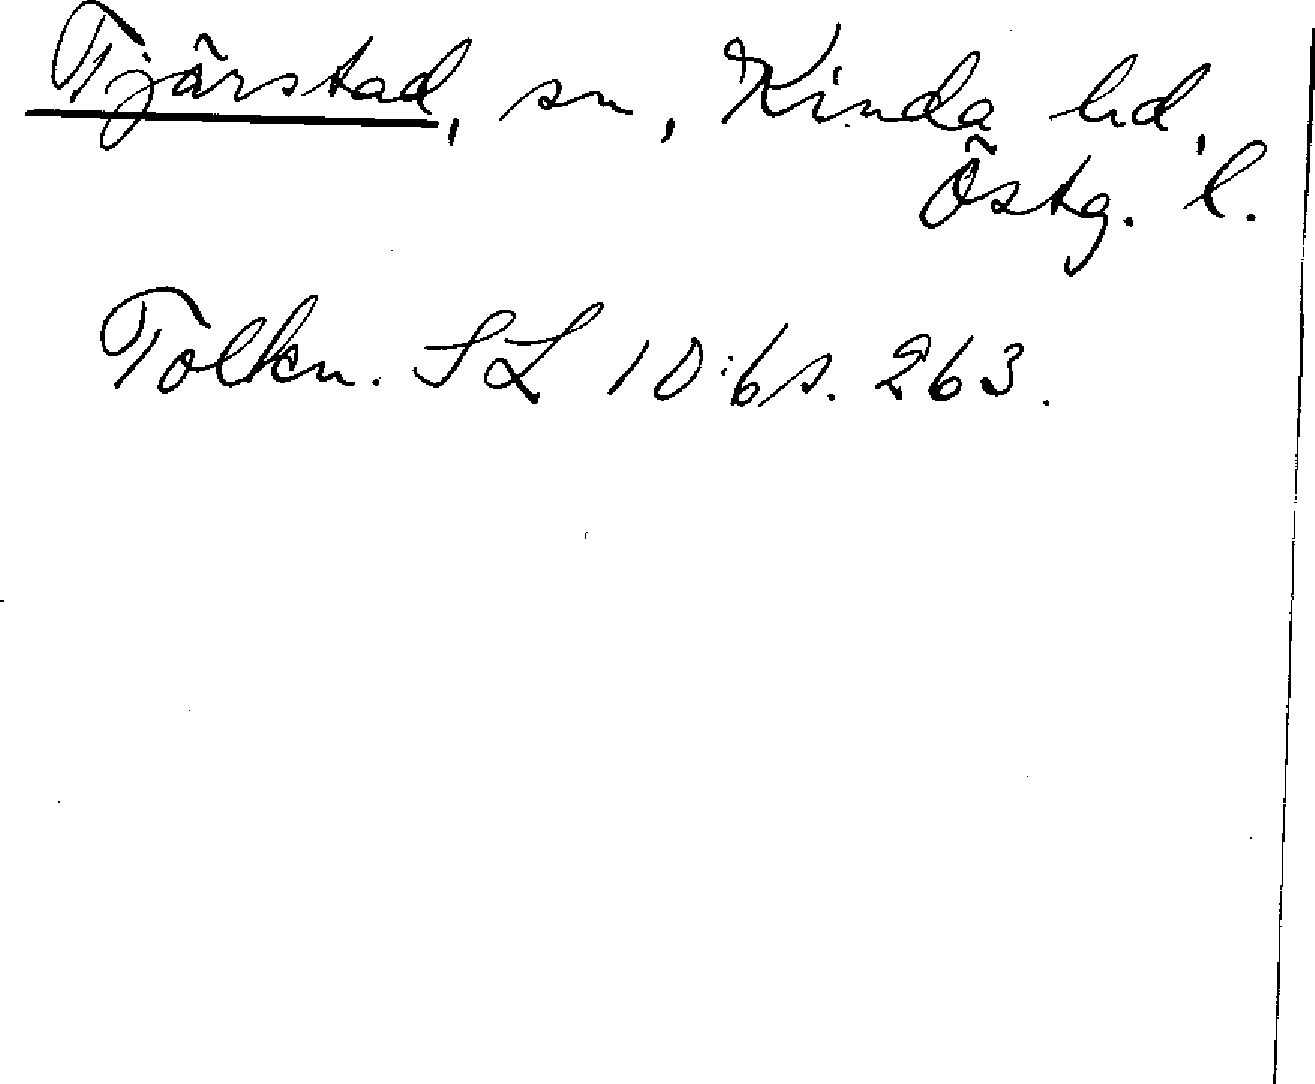 Tjärstad, sn, Kinda hd,
Östg. l.
Tolkn. SL 10:6 s. 263.